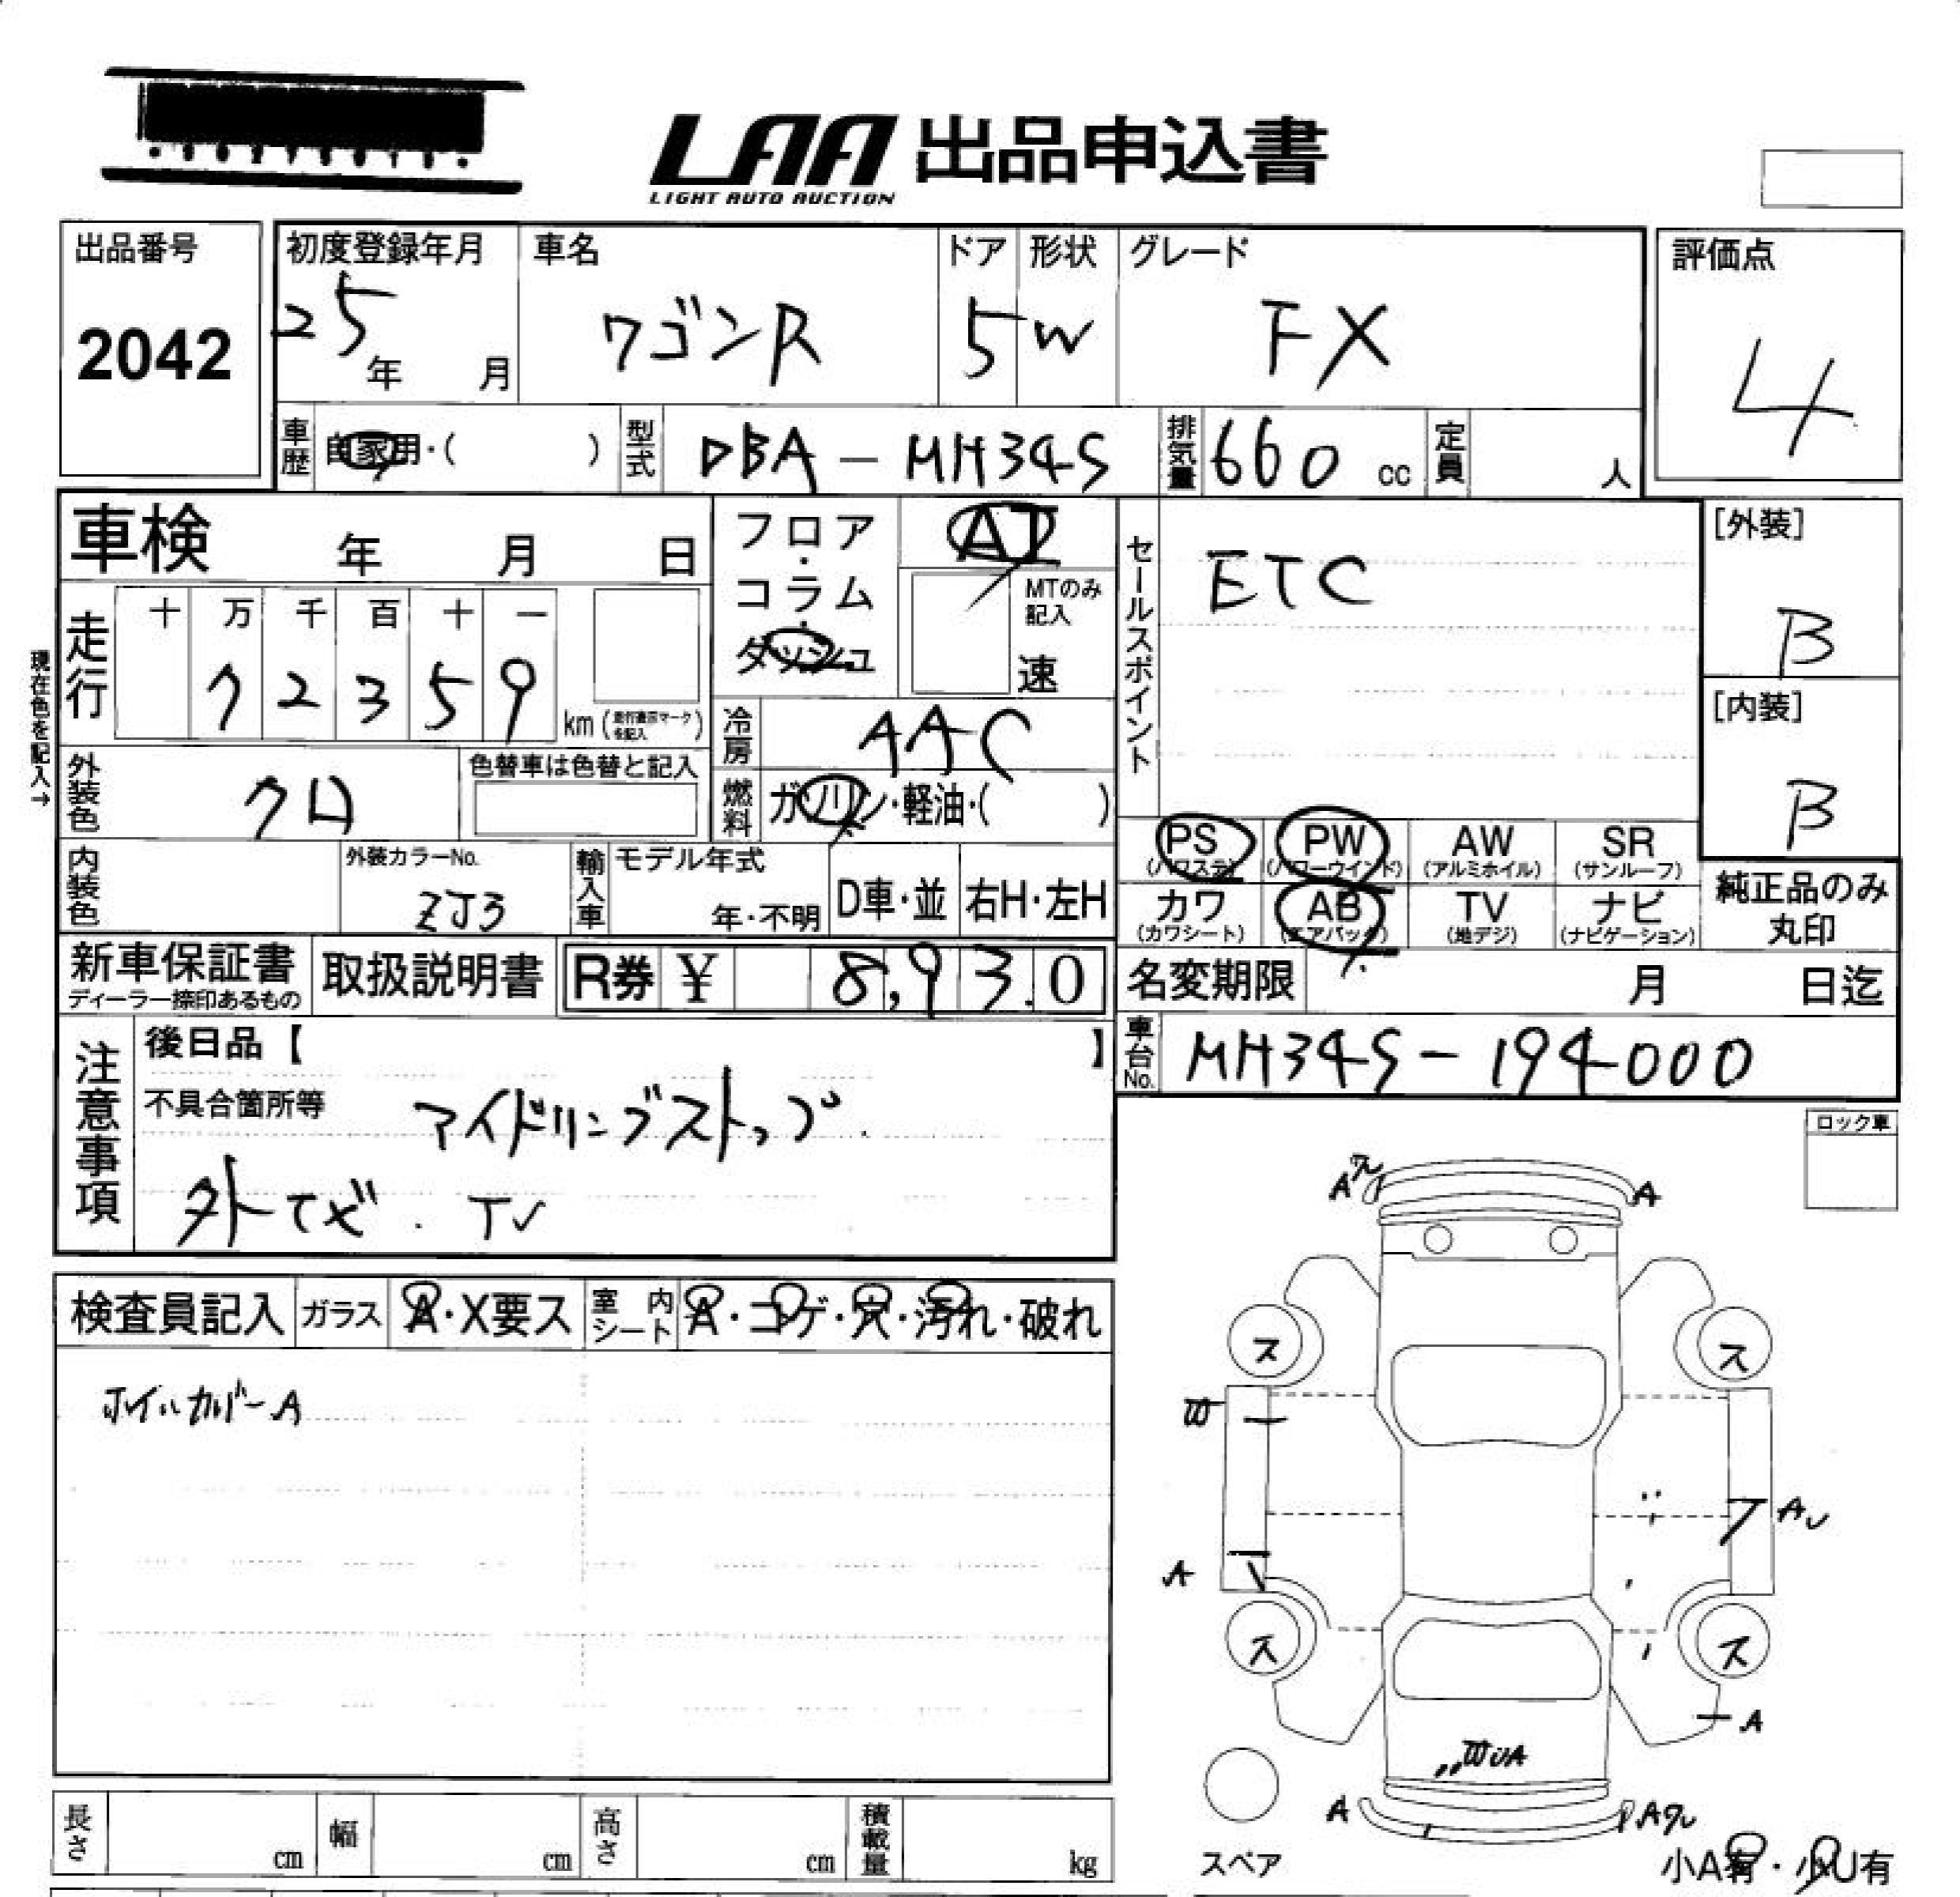 LAA 出品申込書
LIGHT AUTO AUCTION
出品番号
2042
初度登録年月
25年 月
車名
ワゴンR
ドア
5
形状
W
グレード
FX
評価点
4
車歴
自家用・( )
型式
DBA-MH34S
排気量
660 cc
定員
人
車検 年 月 日
フロア・コラム・ダッシュ
AT
MTのみ記入
速
セールスポイント
ETC
[外装]
B
[内装]
B
現在色を記入→
走行
十 万 千 百 十 一
7 2 3 5 9
km (走行表示マークを記入)
冷房
AAC
燃料
ガソリン・軽油・( )
外装色
クロ
色替車は色替と記入
内装色
外装カラーNo.
ZJ3
輸入車
モデル年式
年・不明
D車・並
右H・左H
PS (パワステ)
PW (パワーウインド)
AW (アルミホイル)
SR (サンルーフ)
カワ (カワシート)
AB (エアバッグ)
TV (地デジ)
ナビ (ナビゲーション)
純正品のみ丸印
新車保証書
ディーラー捺印あるもの
取扱説明書
R券 ¥ 8,93.0
名変期限 月 日迄
車台No.
MH34S-194000
注意事項
後日品【 】
不具合箇所等
アイドリングストップ.
外ナビ. TV
ロック車
検査員記入
ガラス
A・X要ス
室内シート
A・コゲ・穴・汚れ・破れ
ホイルカバーA
A
A
ス
ス
A
A
ス
ス
A
A
スペア
小A有・小U有
長さ cm
幅 cm
高さ cm
積載量 kg